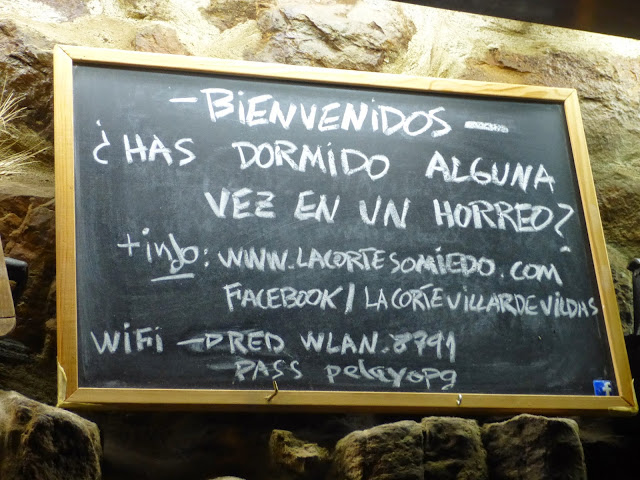 - BIENVENIDOS -
¿HAS DORMIDO ALGUNA
VEZ EN UN HORREO?
+ info: WWW.LACORTESOMIEDO.COM
FACEBOOK/LACORTEVILLARDEVILDAS
WIFI - RED WLAN.8791
PASS pelayopg
f